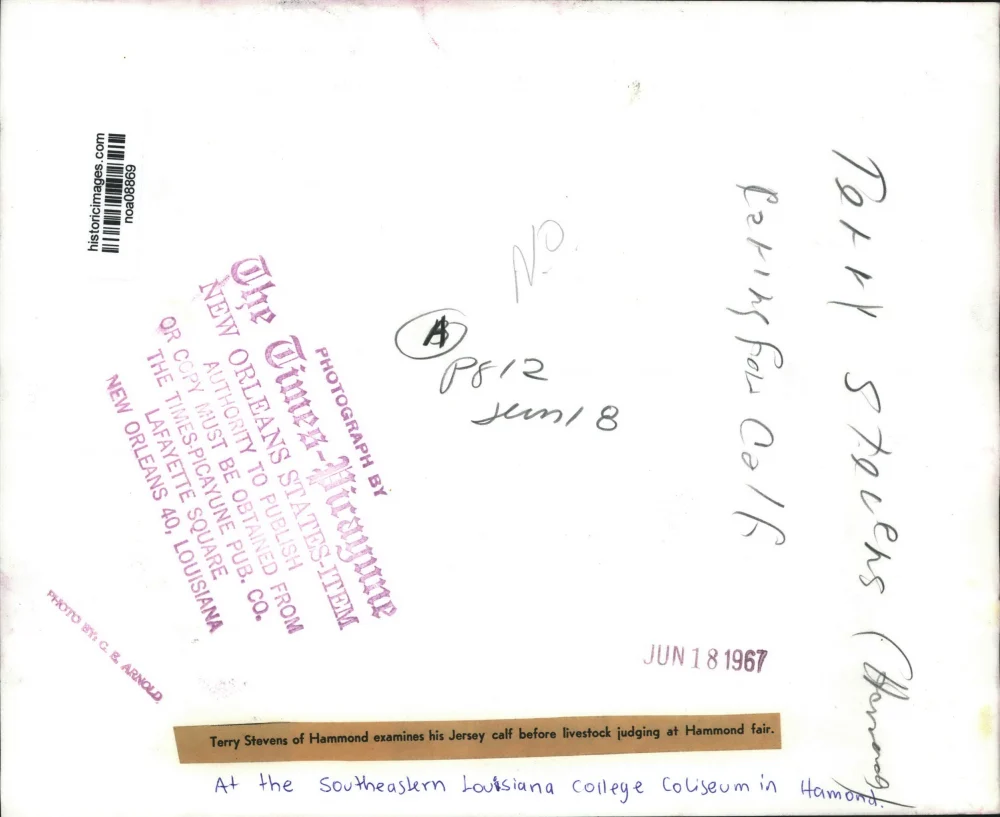 historicimages.com
noa08869
PHOTOGRAPH BY
The Times-Picayune
NEW ORLEANS STATES-ITEM
AUTHORITY TO PUBLISH
OR COPY MUST BE OBTAINED FROM
THE TIMES-PICAYUNE PUB. CO.
LAFAYETTE SQUARE
NEW ORLEANS 40, LOUISIANA
PHOTO BY: G. E. ARNOLD
N.O.
A
Pg 12
Jun 18
Terry Stevens (Hammond)
Caring for Calf
JUN 18 1967
Terry Stevens of Hammond examines his Jersey calf before livestock judging at Hammond fair.
At the Southeastern Louisiana College Coliseum in Hamond.